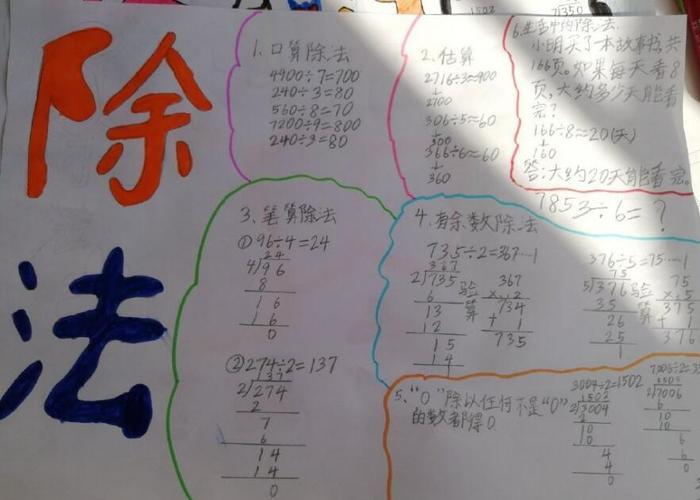 除法
1、口算除法
4900÷7=700
240÷3=80
560÷8=70
7200÷9=800
240÷3=80
2、估算
2716÷3≈900
↓
2700
306÷5≈60
↓
300
366÷6≈60
↓
360
6、生活中的除法:
小明买了一本故事书,共
166页。如果每天看8
页,大约多少天能看
完?
166÷8≈20(天)
↓
160
答:大约20天能看完。
7853÷6=?
3、笔算除法
①96÷4=24
24
4/96
8
16
16
0
②274÷2=137
137
2/274
2
7
6
14
14
0
4、有余数除法
735÷2=367…1
367
2/735
6
13
12
15
14
验算
367
×2
734
+1
735
376÷5=75…1
75
5/376
35
26
25
1
验算
75
×5
375
+1
376
5、“0”除以任何不是“0”
的数都得0
3004÷2=1502
1502
2/3004
2
10
10
4
4
0
2/7006
6
10
10
6
6
0